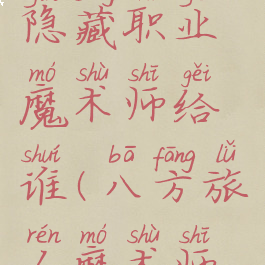 隐藏职业
mó shù shī gěi
魔术师给
shuí bā fāng lǚ
谁(八方旅
rén mó shù shī
人魔术师